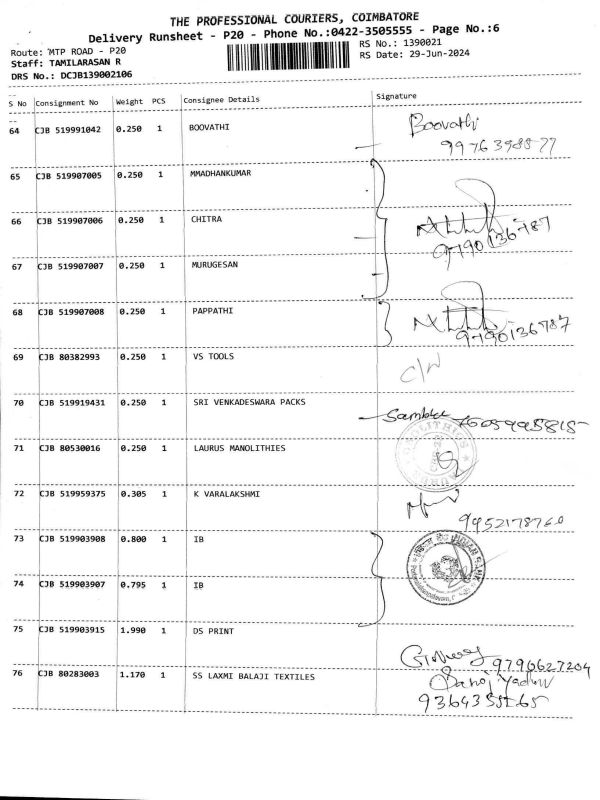 THE PROFESSIONAL COURIERS, COIMBATORE
Delivery Runsheet - P20 - Phone No.:0422-3505555 - Page No.:6
Route: MTP ROAD - P20
RS No.: 1390021
Staff: TAMILARASAN R
RS Date: 29-Jun-2024
DRS No.: DCJB139002106
S No Consignment No Weight PCS Consignee Details Signature
64 CJB 519991042 0.250 1 BOOVATHI Boovathi
9976398877
65 CJB 519907005 0.250 1 MMADHANKUMAR
66 CJB 519907006 0.250 1 CHITRA
9790136787
67 CJB 519907007 0.250 1 MURUGESAN
68 CJB 519907008 0.250 1 PAPPATHI
9790136787
69 CJB 80382993 0.250 1 VS TOOLS C/W
70 CJB 519919431 0.250 1 SRI VENKADESWARA PACKS
7605995815
71 CJB 80530016 0.250 1 LAURUS MANOLITHIES
72 CJB 519959375 0.305 1 K VARALAKSHMI
9952178760
73 CJB 519903908 0.800 1 IB
74 CJB 519903907 0.795 1 IB
75 CJB 519903915 1.990 1 DS PRINT
9790627204
76 CJB 80283003 1.170 1 SS LAXMI BALAJI TEXTILES